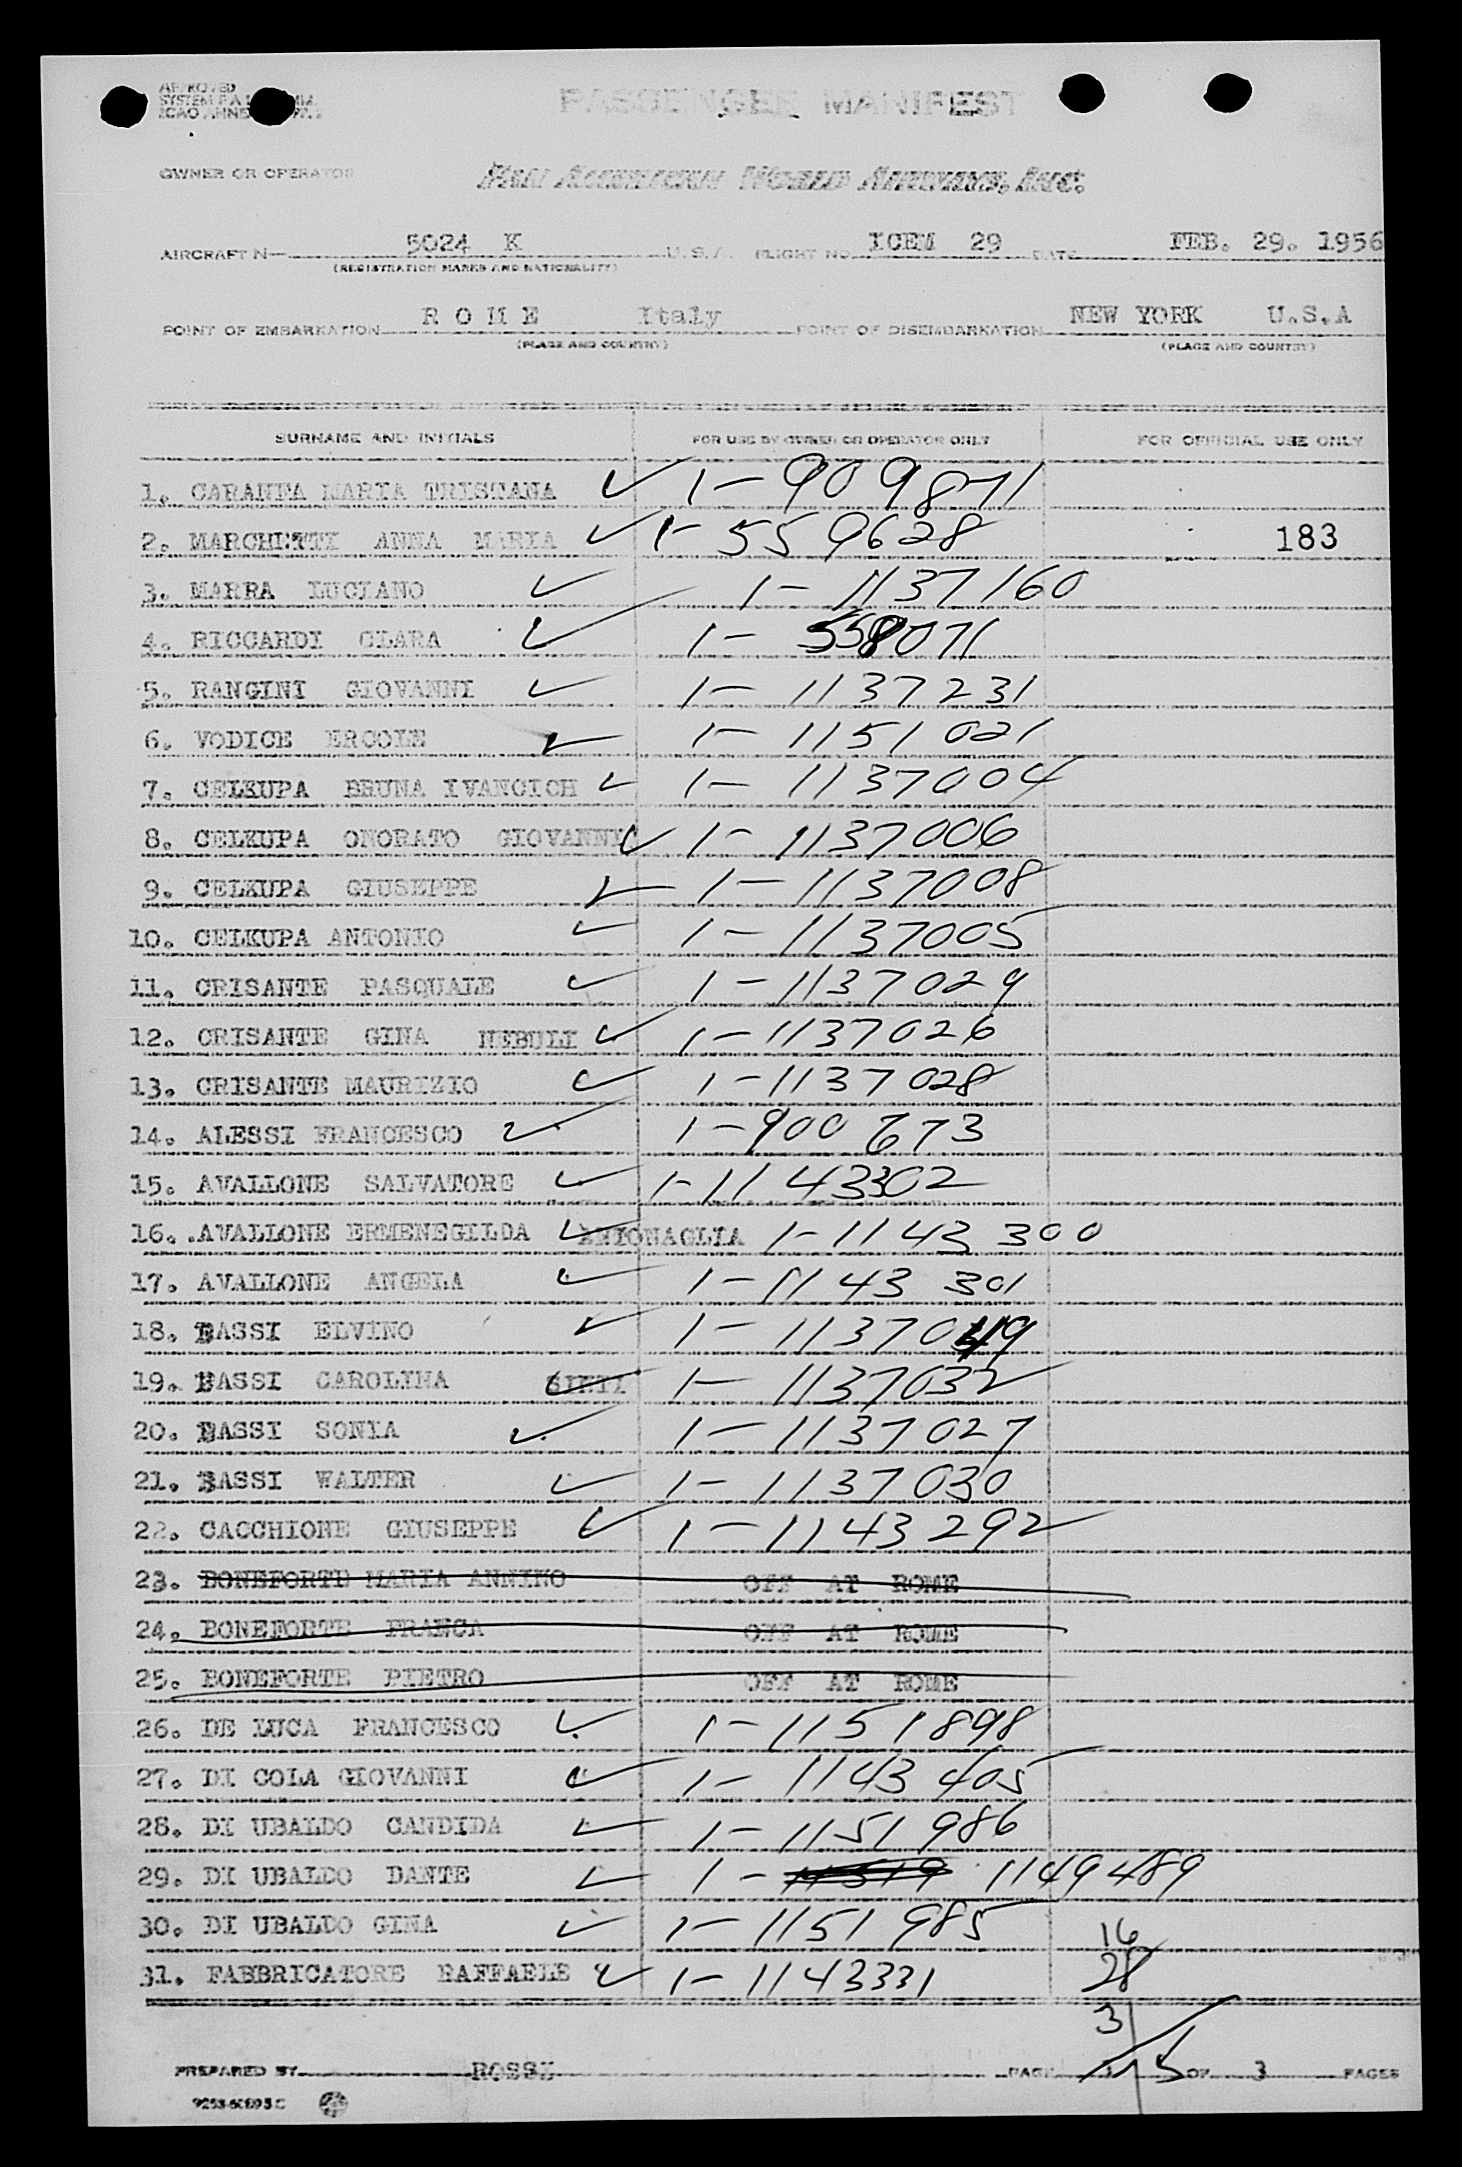 APPROVED
PASSENGER MANIFEST
OWNER OR OPERATOR
PAN AMERICAN WORLD AIRWAYS, INC.
AIRCRAFT N— 5024 K U.S.A. FLIGHT NO. ICEM 29 DATE FEB. 29. 1956
(REGISTRATION MARKS AND NATIONALITY)
POINT OF EMBARKATION R O M E Italy POINT OF DISEMBARKATION NEW YORK U.S.A
(PLACE AND COUNTRY) (PLACE AND COUNTRY)
SURNAME AND INITIALS FOR USE BY OWNER OR OPERATOR ONLY FOR OFFICIAL USE ONLY
1. MARIA TRISTANA ✓ 1-909871
2. MARCHETTI ANNA MARIA ✓ 1-559628 183
3. MARRA LUCIANO ✓ 1-1137160
4. RICCARDI CLARA ✓ 1-558071
5. RANGINI GIOVANNI ✓ 1-1137231
6. VODICE ERCOLE ✓ 1-1151021
7. CELKUPA BRUNA IVANCICH ✓ 1-1137004
8. CELKUPA ONORATO GIOVANNI ✓ 1-1137006
9. CELKUPA GIUSEPPE ✓ 1-1137008
10. CELKUPA ANTONIO ✓ 1-1137005
11. CRISANTE PASQUALE ✓ 1-1137029
12. CRISANTE GINA NEBULI ✓ 1-1137026
13. CRISANTE MAURIZIO ✓ 1-1137028
14. ALESSI FRANCESCO ✓ 1-900673
15. AVALLONE SALVATORE ✓ 1-1143302
16. AVALLONE ERMENEGILDA ✓ 1-1143300
17. AVALLONE ANGELA ✓ 1-1143301
18. BASSI ELVINO ✓ 1-1137049
19. BASSI CAROLINA SIETI ✓ 1-1137032
20. BASSI SONIA ✓ 1-1137027
21. BASSI WALTER ✓ 1-1137030
22. CACCHIONE GIUSEPPE ✓ 1-1143292
23. BONEFORTE MARIA ANNINO OFF AT ROME
24. BONEFORTE FRANCA OFF AT ROME
25. BONEFORTE PIETRO OFF AT ROME
26. DE LUCA FRANCESCO ✓ 1-1151898
27. DI COLA GIOVANNI ✓ 1-1143405
28. DI UBALDO CANDIDA ✓ 1-1151986
29. DI UBALDO DANTE ✓ 1-11519 1149489
30. DI UBALDO GINA ✓ 1-1151985
16
31. FABBRICATORE RAFFAELE ✓ 1-1143331
28
31
PREPARED BY ROSSI PAGE 1 OF 3 PAGES